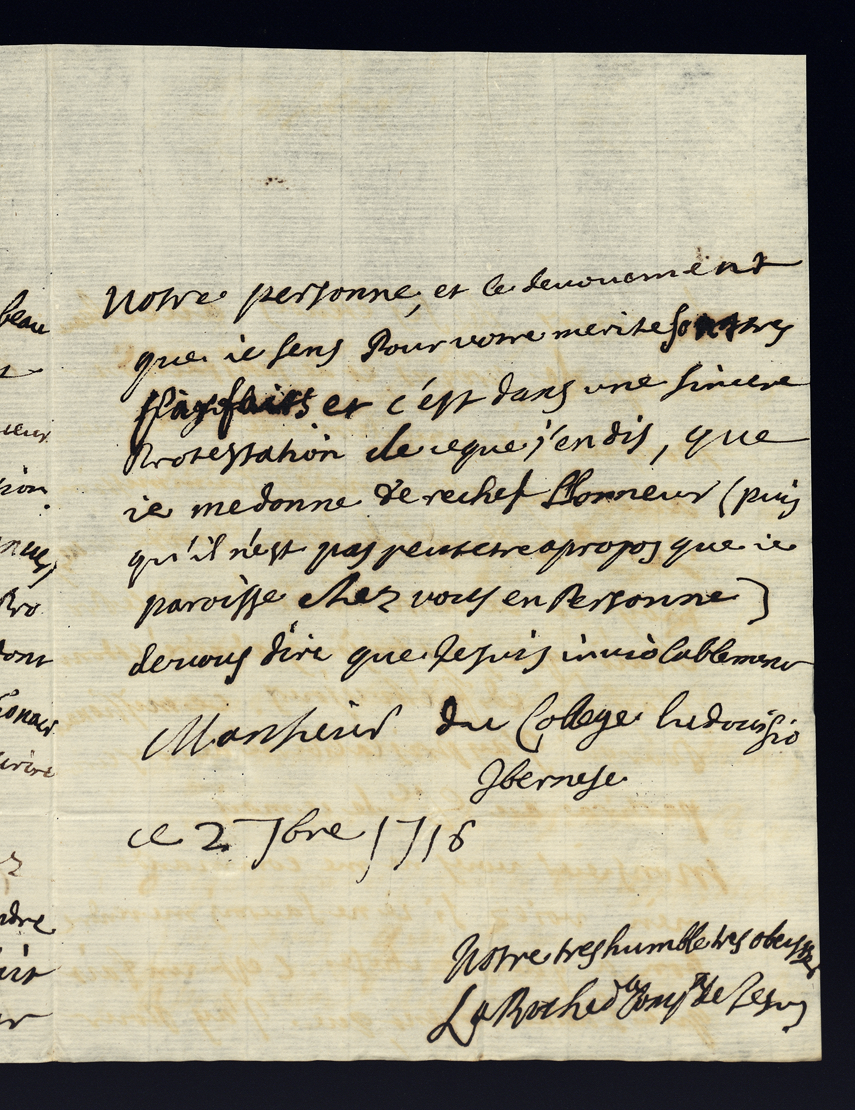 beau
ieur
Votre personne, et le devouement
que ie sens Pour votre merite sont tres
parfaits et c'est dans une sincere
Protestation de ceque j'en dis, que
ie medonne derechef Lhonneur (puis
qu'il n'est pas peutetre apropos que ie
paroisse chez vous en Personne)
devous dire que Jesuis inviolablement
Monsieur du College ludovisio
Ibernese
ce 2 7bre 1716
Votre treshumble tres
La Roche de la Comp de Jesus
dont
ndre